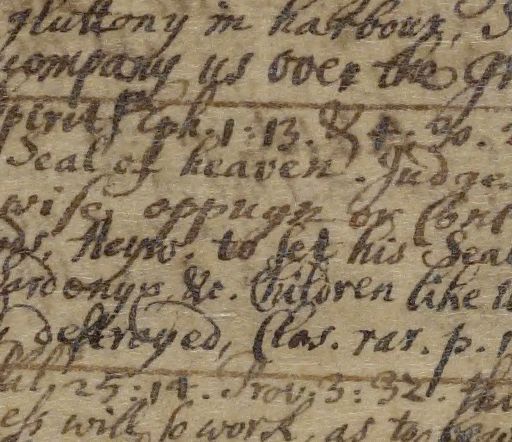 gluttony in harbour, S
company us over the Gr
pirit, Eph. 1: 13. & 4. 30.
Seal of heaven. Judge
wise oppugn or Cont
ods, Heyw. to set his Seal
ardonyx &c. Children like t
destroyed, Clas. rar. p. 1
al. 25: 14. Prov. 3: 32. the
ess will so work as to